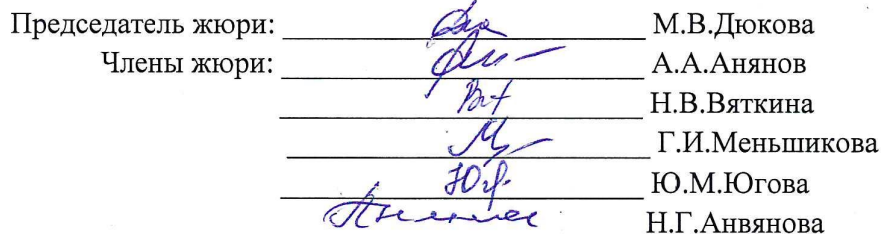 Председатель жюри: М.В.Дюкова
Члены жюри: А.А.Анянов
Н.В.Вяткина
Г.И.Меньшикова
Ю.М.Югова
Н.Г.Анвянова